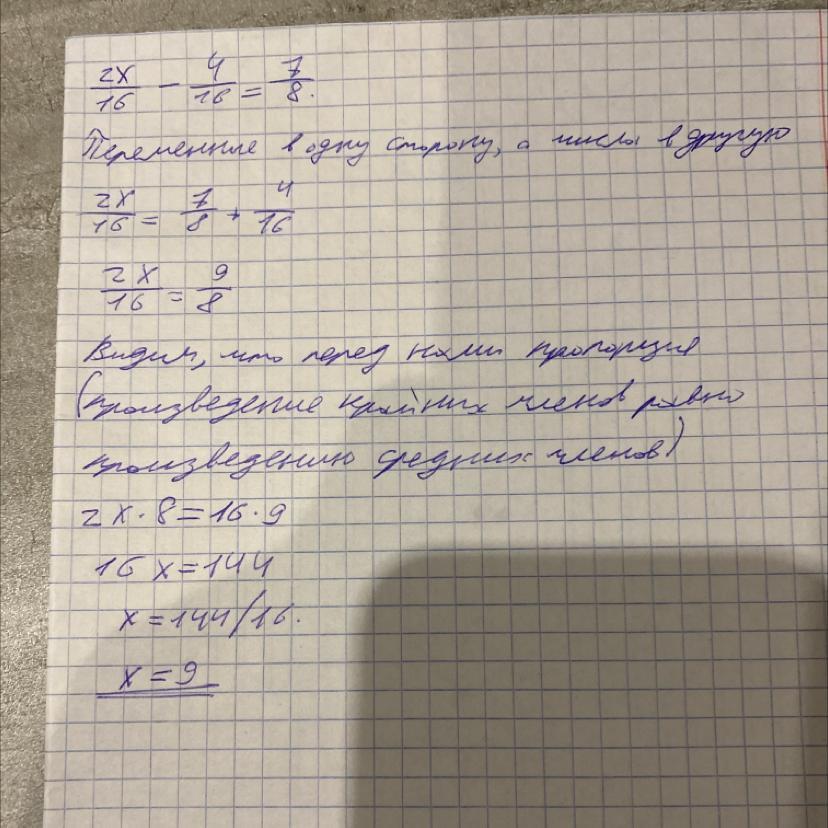 2x/16 - 4/16 = 7/8.
Переменные в одну сторону, а числа в другую
2x/16 = 7/8 + 4/16
2x/16 = 9/8
Видим, что перед нами пропорция
(произведение крайних членов равно
произведению средних членов)
2x·8=16·9
16x=144
x=144/16.
x=9